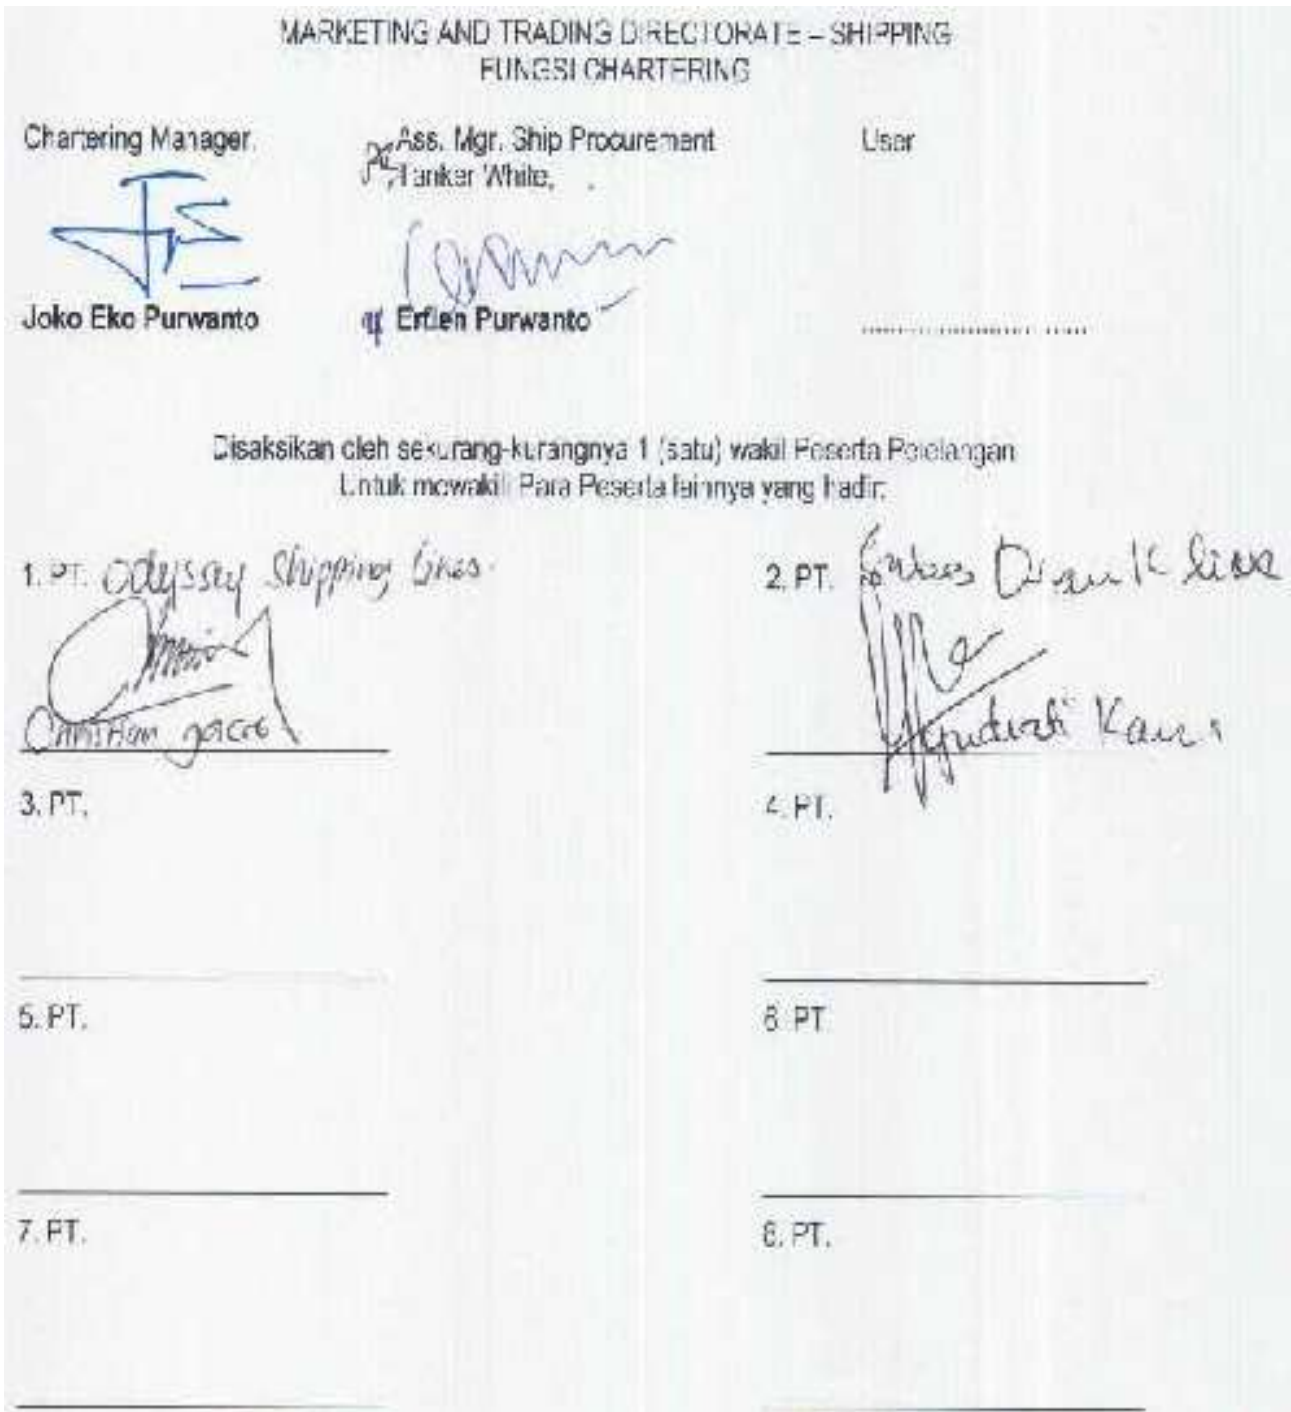 MARKETING AND TRADING DIRECTORATE – SHIPPING
FUNGSI CHARTERING
Chartering Manager,
Ass. Mgr. Ship Procurement
Tanker White,
User
Joko Eko Purwanto
Erflen Purwanto
Disaksikan oleh sekurang-kurangnya 1 (satu) wakil Peserta Pelelangan
Untuk mewakili Para Peserta lainnya yang hadir:
1. PT. Odyssey Shipping Lines.
2. PT. Line
Christian
Kan
3. PT.
4. PT.
5. PT.
6. PT.
7. PT.
8. PT.